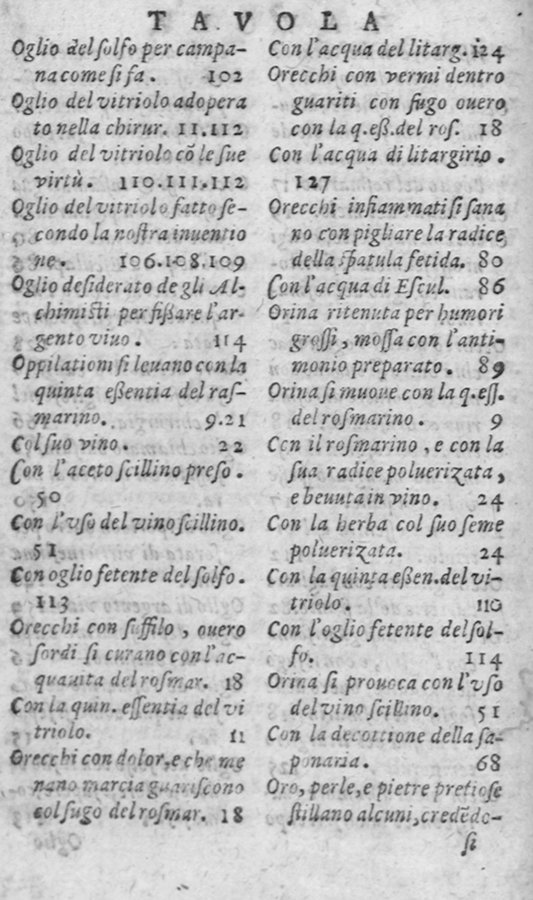 TAVOLA
Oglio del ſolfo per campa-
na come ſi fa. 102
Oglio del vitriolo adopera
to nella chirur. 11.112
Oglio del vitriolo cō le ſue
virtù. 110.111.112
Oglio del vitriolo fatto ſe-
condo la noſtra inuentio
ne. 106.108.109
Oglio deſiderato de gli Al-
chimiſti per fiſſare l'ar-
gento viuo. 114
Oppilationi ſi leuano con la
quinta eßentia del raſ-
marino. 9.21
Col ſuo vino. 22
Con l'aceto ſcillino preſo.
50
Con l'vſo del vino ſcillino.
51
Con oglio fetente del ſolfo.
113
Orecchi con ſuffilo, ouero
ſordi ſi curano con l'ac-
quauita del roſmar. 18
Con la quin. eſſentia del vi
triolo. 11
Orecchi con dolor, e che me
nano marcia guariſcono
col ſugo del roſmar. 18
Con l'acqua del litarg. 124
Orecchi con vermi dentro
guariti con ſugo ouero
con la q.eß.del roſ. 18
Con l'acqua di litargirio.
127
Orecchi infiammati ſi ſana
no con pigliare la radice
della ſpatula fetida. 80
Con l'acqua di Eſcul. 86
Orina ritenuta per humori
groſſi, moſſa con l'anti-
monio preparato. 89
Orina ſi muoue con la q.eſſ.
del roſmarino. 9
Con il roſmarino, e con la
ſua radice poluerizata,
e beuuta in vino. 24
Con la herba col ſuo ſeme
poluerizata. 24
Con la quinta eßen.del vi-
triolo. 110
Con l'oglio fetente del ſol-
fo. 114
Orina ſi prouoca con l'vſo
del vino ſcillino. 51
Con la decottione della ſa-
ponaria. 68
Oro, perle, e pietre pretioſe
ſtillano alcuni, credēdo-
ſi